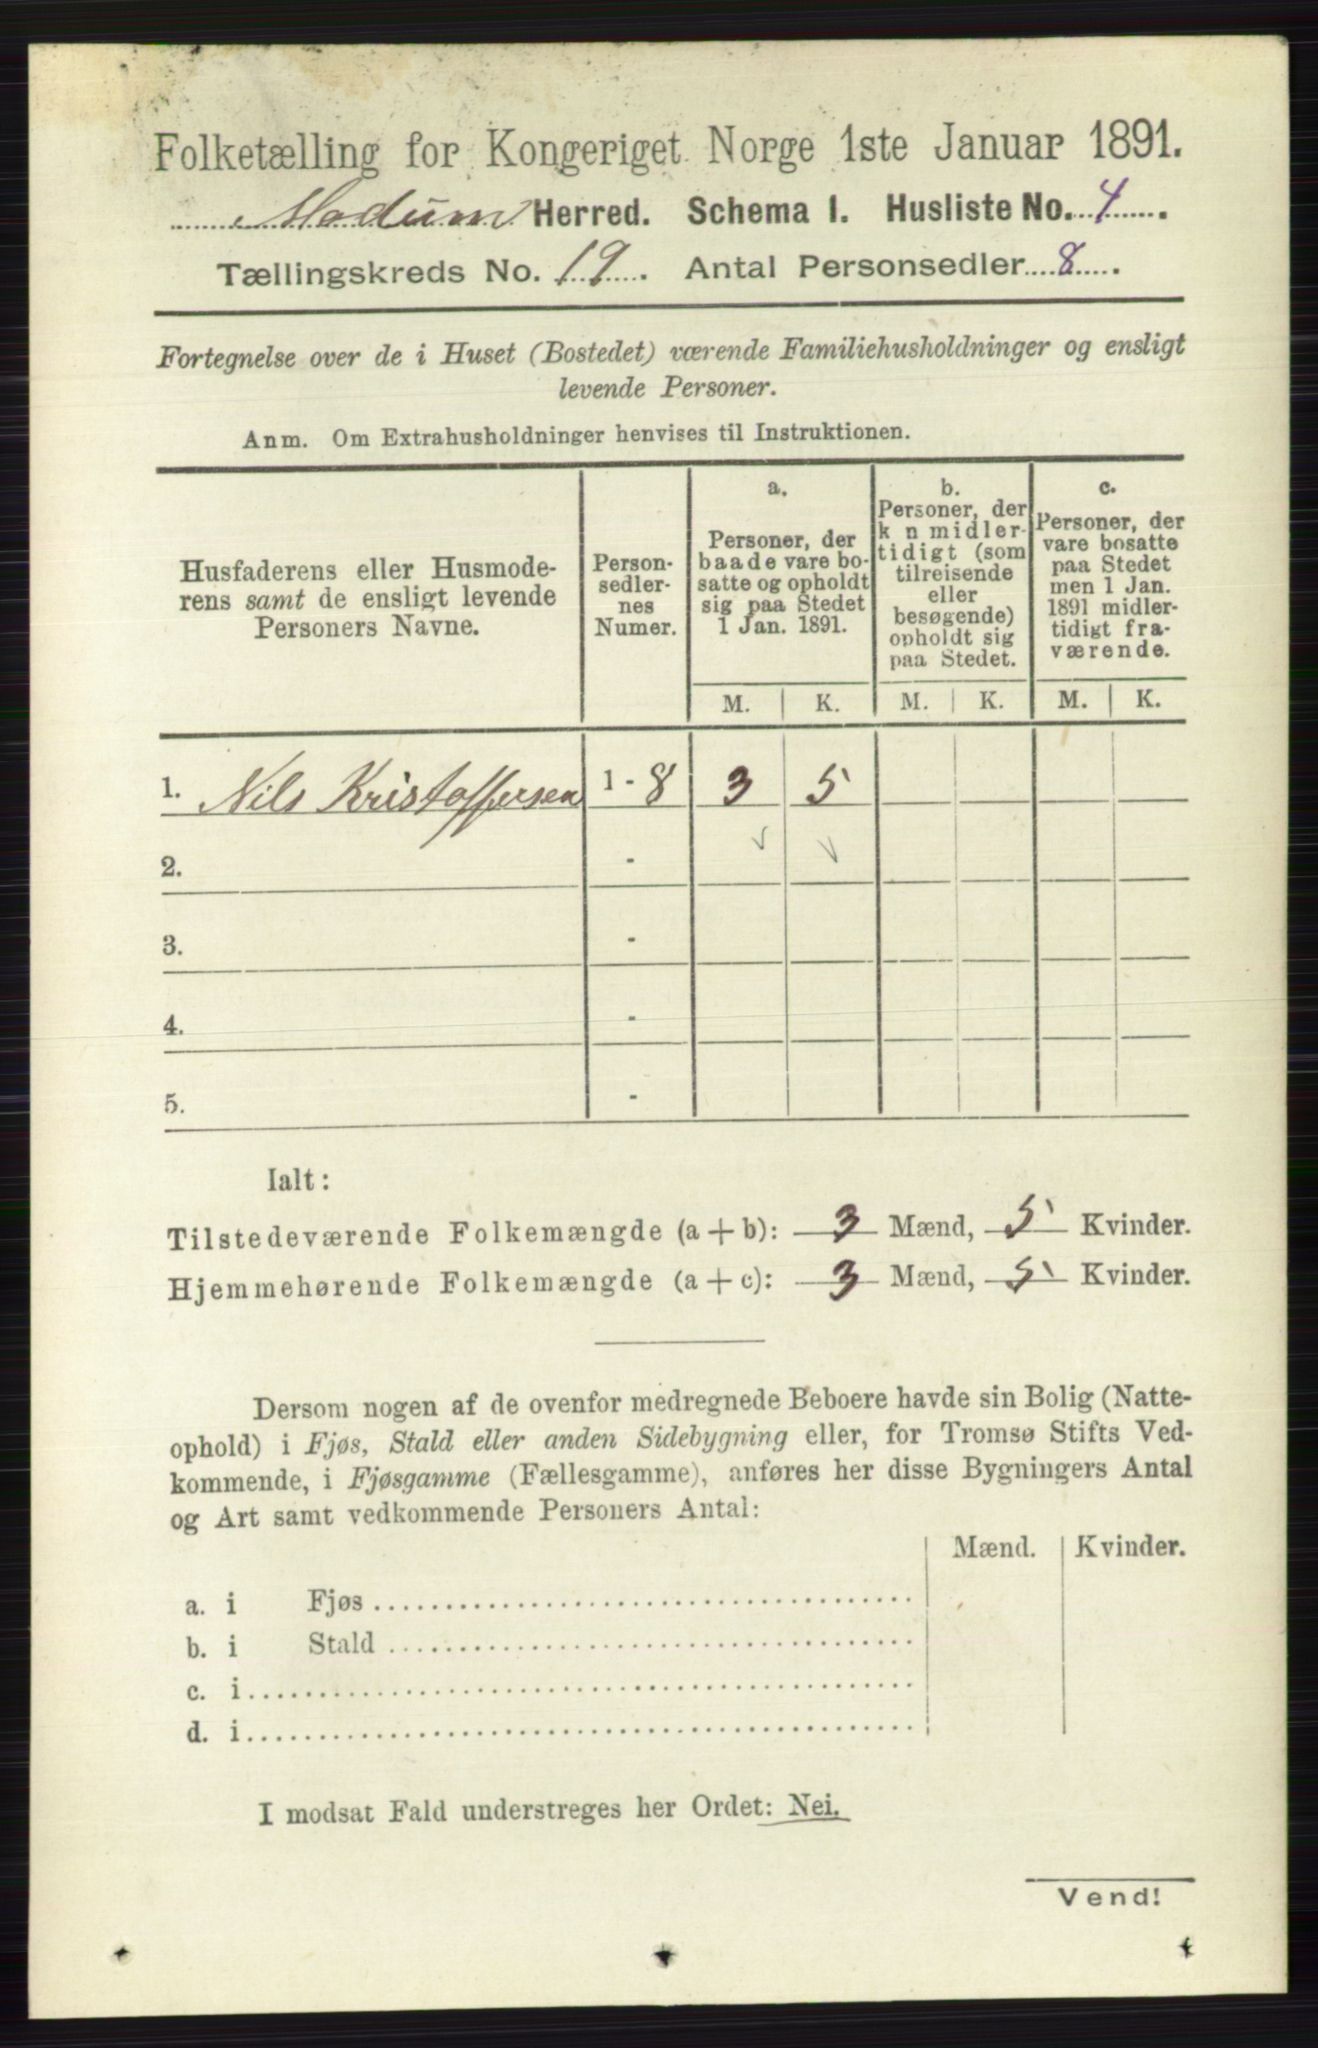 Folketælling for Kongeriget Norge 1ste Januar 1891.
Modum Herred. Schema 1. Husliste No. 4.
Tællingskreds No. 19. Antal Personsedler 8.
Fortegnelse over de i Huset (Bostedet) værende Familiehusholdninger og ensligt
levende Personer.
Anm. Om Extrahusholdninger henvises til Instruktionen.
Husfaderens eller Husmode-
rens samt de ensligt levende
Personers Navne.
Person-
sedler-
nes
Numer.
a.
Personer, der
baade vare bo-
satte og opholdt
sig paa Stedet
1 Jan. 1891.
b.
Personer, der
k n midler-
tidigt (som
tilreisende
eller
besøgende)
opholdt sig
paa Stedet.
c.
Personer, der
vare bosatte
paa Stedet
men 1 Jan.
1891 midler-
tidigt fra-
værende.
M. K. M. K. M. K.
1. Nils Kristoffersen 1 - 8 3 5
2. -
3. -
4. -
5. -
Ialt:
Tilstedeværende Folkemængde (a + b): 3 Mænd, 5 Kvinder.
Hjemmehørende Folkemængde (a + c): 3 Mænd, 5 Kvinder.
Dersom nogen af de ovenfor medregnede Beboere havde sin Bolig (Natte-
ophold) i Fjøs, Stald eller anden Sidebygning eller, for Tromsø Stifts Ved-
kommende, i Fjøsgamme (Fællesgamme), anføres her disse Bygningers Antal
og Art samt vedkommende Personers Antal:
Mænd. Kvinder.
a. i Fjøs
b. i Stald
c. i
d. i
I modsat Fald understreges her Ordet: Nei.
Vend!